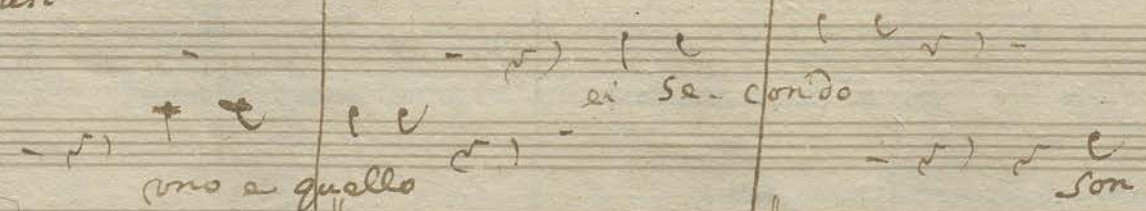 ei se-condo
uno e quello son